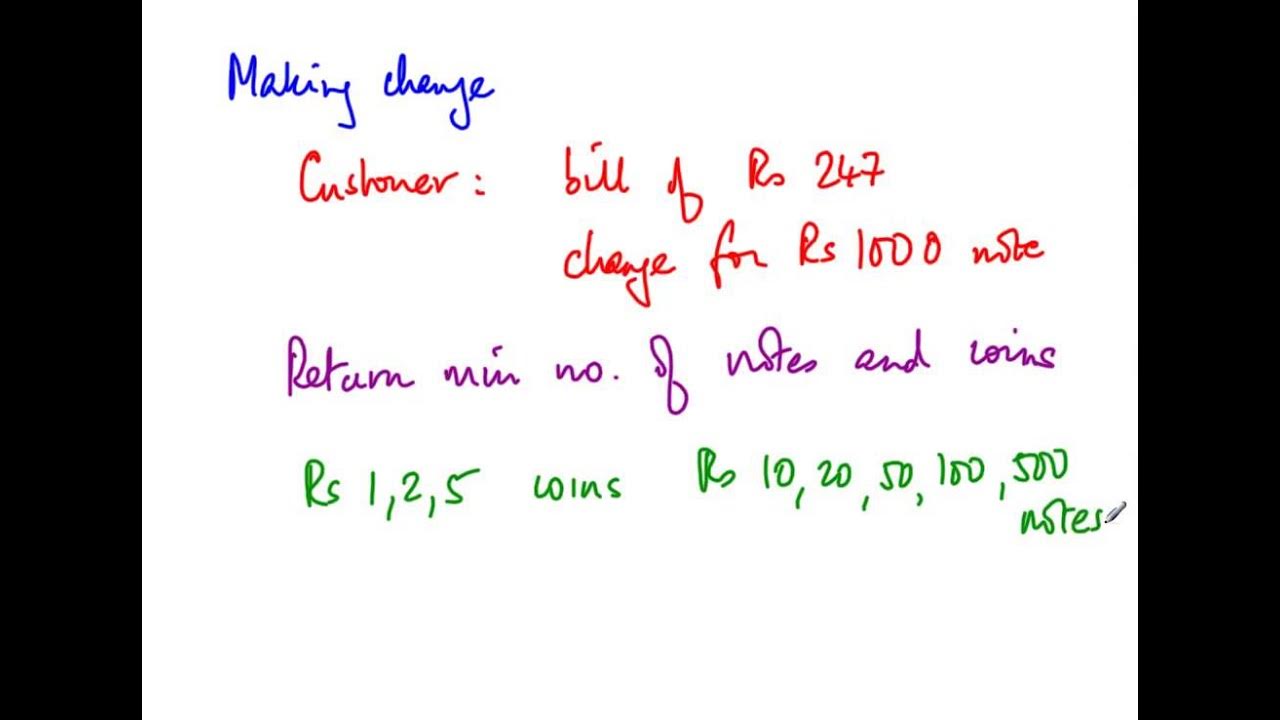 Making change
Customer: bill of Rs 247
change for Rs 1000 note
Return min no. of notes and coins
Rs 1, 2, 5 coins Rs 10, 20, 50, 100, 500
notes